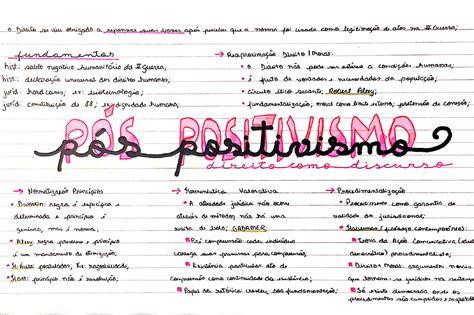 o Direito se viu obrigado a repensar suas bases após perceber que a norma foi usada como legitimação de atos na II Guerra;
fundamentos
hist: saldo negativo humanitário da II Guerra;
hist: declaração universal dos direitos humanos;
juríd: hard cases, ex: biotecnologia;
juríd: constituição de 88, ex: dignidade humana;
→ Reaproximação Direito | Moral:
o Direito não pode ser alheio a condições humanas;
é fruto de vontades e necessidades da população;
círculo ético secante, Robert Alexy;
fundamentalização, moral como limite externo, pretensão de correção;
PÓS POSITIVISMO
pós positivismo
direito como discurso
→ Normatização Princípios
Dworkin: regra é específica e
determinada e princípio é
genérico, mas é norma;
Alexy: regra pondera e princípio
é um mandamento de otimização;
postulados, Ex: razoabilidade;
princípio não é resolução;
→ Hermenêutica Valorativa
A atividade jurídica não ocorre
através de métodos, não há uma
receita de bolo, GADAMER;
Pré compreensão: cada indivíduo
carrega suas premissas para compreensão;
Existência particular até da
compreensão como continuidade da existência;
Papel da retórica: creditos, seus fundamentação;
→ Procedimentalização
Procedimento como garantia de
validade do jurisdicional;
Habermas (filósofo contemporâneo):
Teoria da Ação Comunicativa (ideal
democrático) procedimentalista;
Direitos Moral: argumentos morais
que tornam-se jurídicos na sentença
Só existe democracia onde os
procedimentos são cumpridos e respeitados;